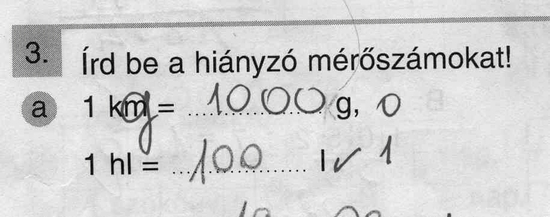 3. Írd be a hiányzó mérőszámokat!
a 1 kmg = 1000 g, 0
1 hl = 100 l ✓ 1